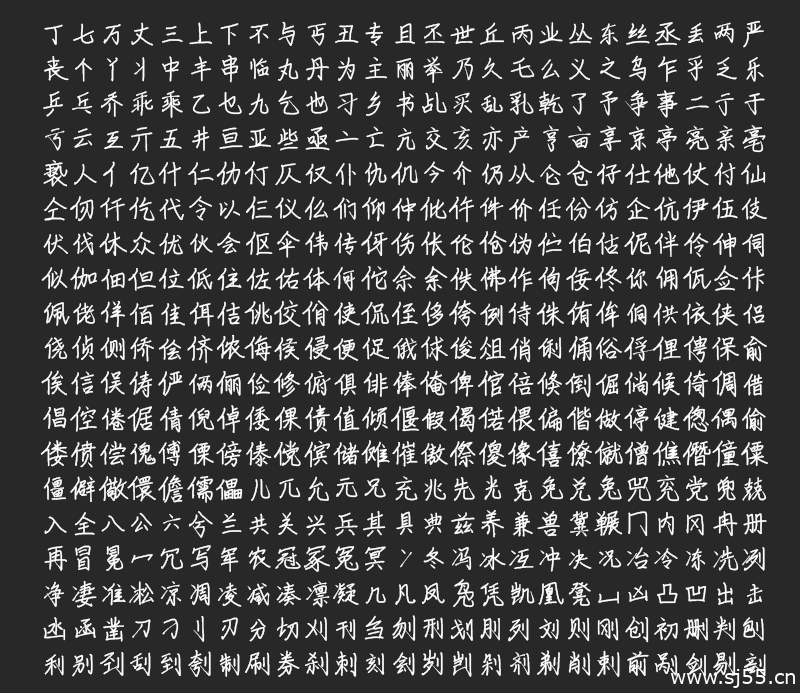 丁七万丈三上下不与丐丑专且丕世丘丙业丛东丝丞丢两严
丧个丫丬中丰串临丸丹为主丽举乃久乇么义之乌乍乎乏乐
乒乓乔乖乘乙乜九乞也习乡书乩买乱乳乾了予争事二亍于
亏云互亓五井亘亚些亟亠亡亢交亥亦产亨亩享京亭亮亲亳
亵人亻亿什仁仂仃仄仅仆仇仉今介仍从仑仓仔仕他仗付仙
仝仞仟仡代令以仨仪仫们仰仲仳仵件价任份仿企伉伊伍伎
伏伐休众优伙会伛伞伟传伢伤伥伦伧伪伫伯估伲伴伶伸伺
似伽佃但位低住佐佑体何佗佘余佚佛作佝佞佟你佣佤佥佧
佩佬佯佰佳佴佶佻佼佾使侃侄侈侉例侍侏侑侔侗供依侠侣
侥侦侧侨侩侪侬侮侯侵便促俄俅俊俎俏俐俑俗俘俚俜保俞
俟信俣俦俨俩俪俭修俯俱俳俸俺俾倌倍倏倒倔倘候倚倜借
倡倥倦倨倩倪倬倭倮债值倾偃假偈偌偎偏偕做停健偬偶偷
偻偾偿傀傅傈傍傣傥傧储傩催傲傺傻像僖僚僦僧僬僭僮僳
僵僻儆儇儋儒儡儿兀允元兄充兆先光克免兑兔兕兖党兜兢
入全八公六兮兰共关兴兵其具典兹养兼兽冀冁冂内冈冉册
再冒冕冖冗写军农冠冢冤冥冫冬冯冰冱冲决况冶冷冻冼冽
净凄准凇凉凋凌减凑凛凝几凡凤凫凭凯凰凳凵凶凸凹出击
凼函凿刀刁刂刃分切刈刊刍刎刑划刖列刘则刚创初删判刨
利别刭刮到刳制刷券刹刺刻刽刿剀剁剂剃削剌前剐剑剔剖
www.sj55.cn